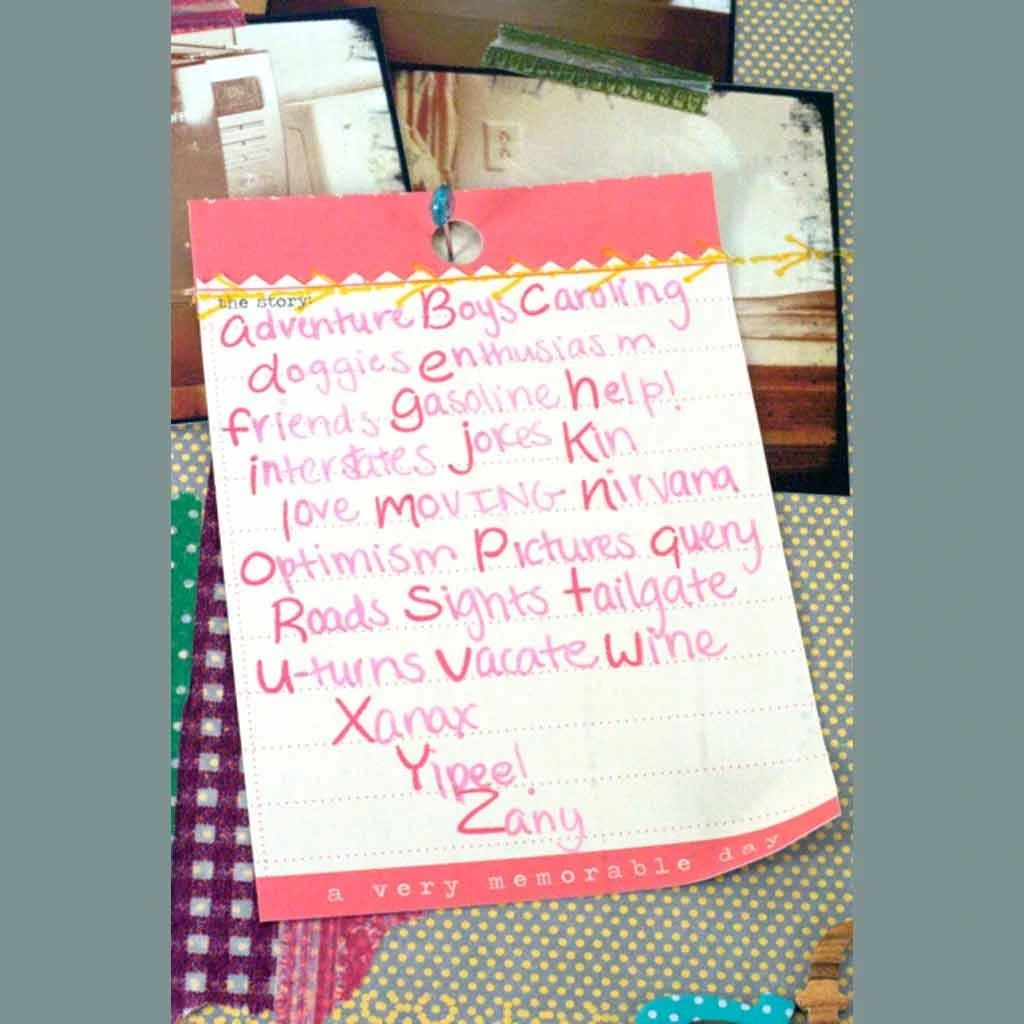 the story:
adventure Boys Caroling
doggies enthusiasm
friends gasoline help!
interstates jokes Kin
love moVING nirvana
Optimism Pictures query
Roads Sights tailgate
U-turns Vacate Wine
Xanax
Yipee!
Zany
a very memorable day